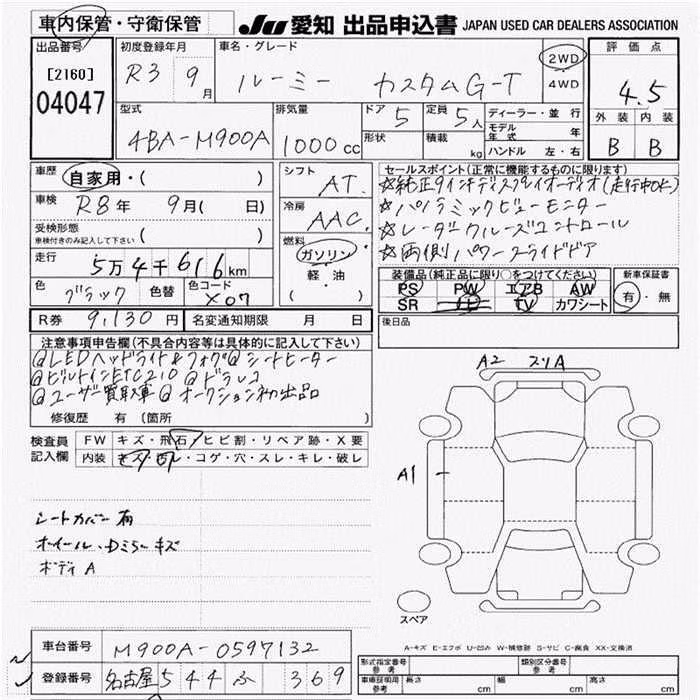 車内保管・守衛保管
JU 愛知 出品申込書 JAPAN USED CAR DEALERS ASSOCIATION
出品番号
[2160]
04047
初度登録年月
R3 9月
車名・グレード
ルーミー カスタムG-T
2WD
4WD
評価点
4.5
外装 内装
B B
型式
4BA-M900A
排気量
1000cc
ドア 5
定員 5人
形状
積載 kg
ディーラー・並行
モデル年式 年
ハンドル 左・右
車歴
自家用・( )
車検 R8年 9月( 日)
受検形態
車検付きのみ記入して下さい ( )
走行
5万4千616km
色 ブラック 色替 色コード X07
シフト AT
冷房 AAC
燃料
ガソリン
軽・油
( )
セールスポイント(正常に機能するものに限ります)
☆純正9インチディスプレイオーディオ(走行中OK)
☆パノラミックビューモニター
☆レーダークルーズコントロール
☆両側パワースライドドア
装備品(純正品に限り○をつけてください)
PS PW エアB AW
SR ナビ TV カワシート
新車保証書
有・無
R券 9,130円 名変通知期限 月 日
後日品
注意事項申告欄(不具合内容等は具体的に記入して下さい)
@LEDヘッドライト&フォグ@シートヒーター
@ビルトインETC2.0 @ドラレコ
@ユーザー買取車@オークション初出品
修復歴 有(箇所 )
検査員記入欄
FW キズ・飛石・ヒビ割・リペア跡・X要
内装 キズ・汚レ・コゲ・穴・スレ・キレ・破レ
シートカバー有
ホイール・Dミラーキズ
ボディA
A2 スリA
A1
スペア
A-キズ E-エクボ U-凹み W-補修跡 S-サビ C-腐食 XX-交換済
車台番号 M900A-0597132
登録番号 名古屋544ふ369
形式指定番号 参考
類別区分番号 参考
車庫証明用 参考 長さ cm 幅 cm 高さ cm